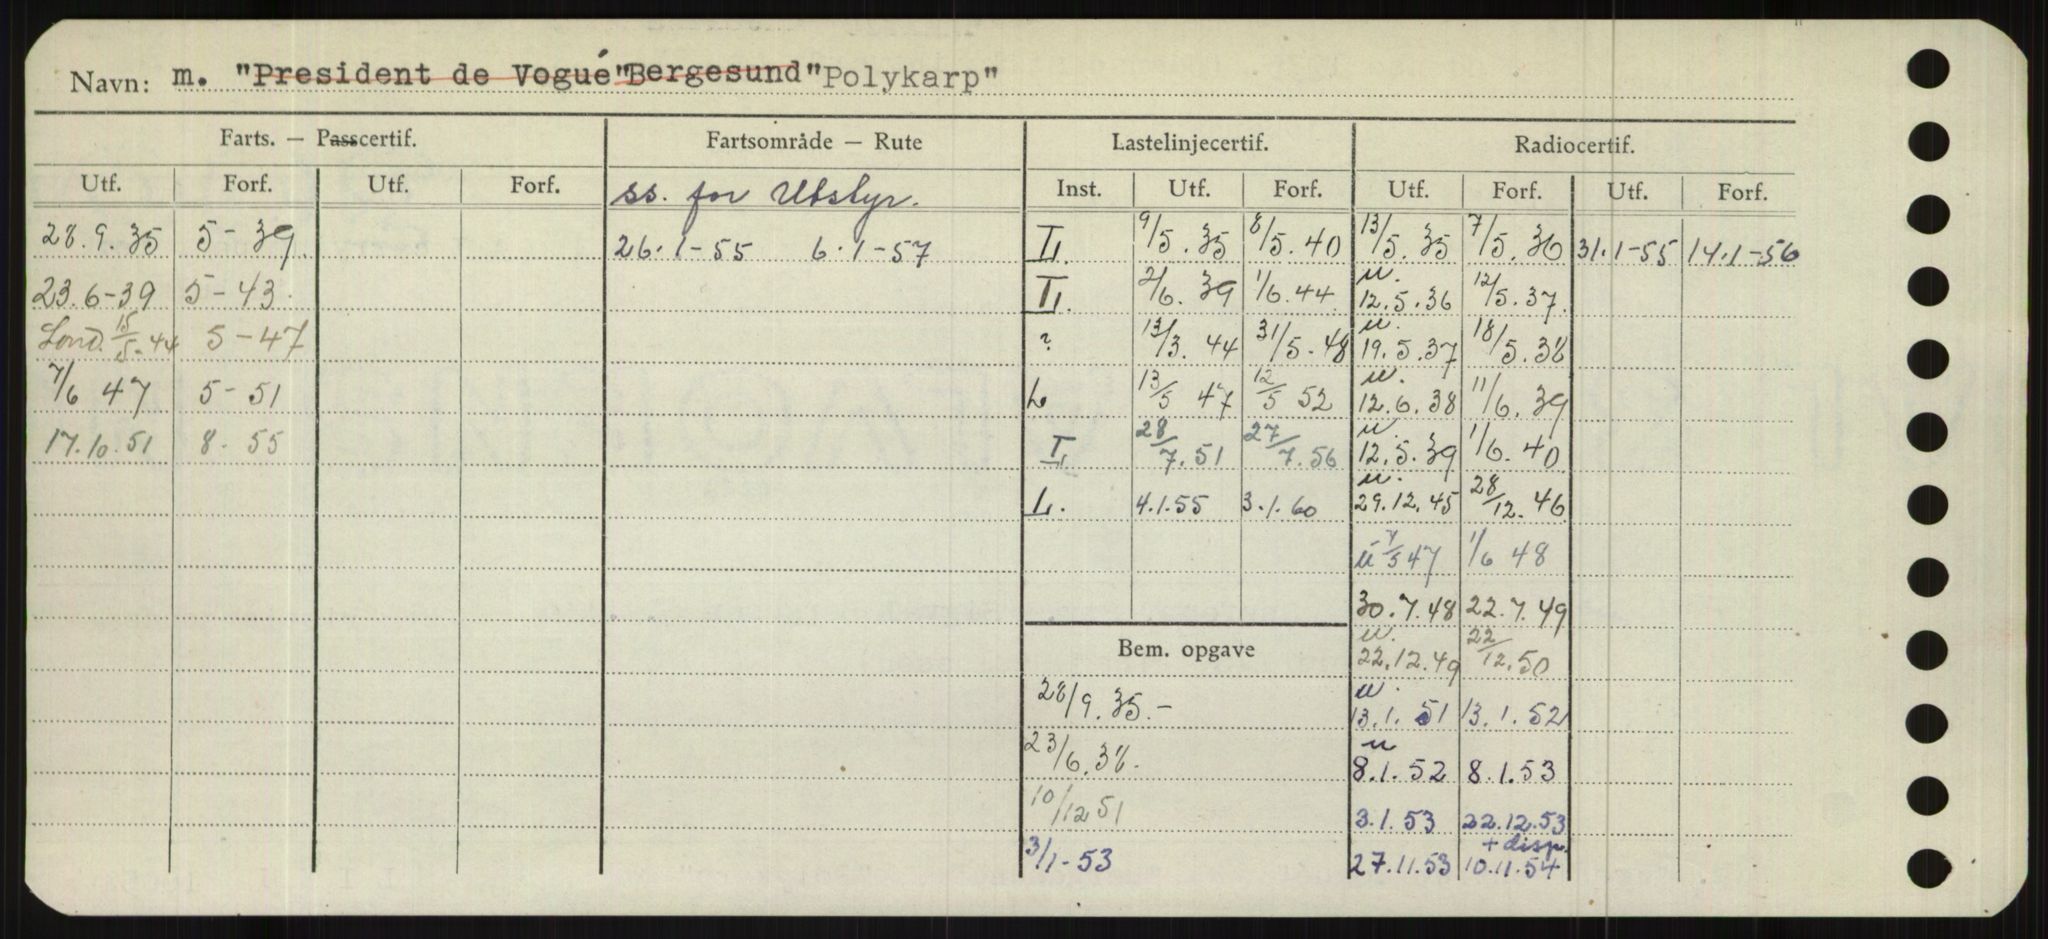 Navn: m. "President de Vogué" "Bergesund" "Polykarp"
Farts. — Passcertif. Fartsområde — Rute Lastelinjecertif. Radiocertif.
Utf. Forf. Utf. Forf. ss. for Utstyr. Inst. Utf. Forf. Utf. Forf. Utf. Forf.
28.9.35 5-39. 26.1-55 6.1-57 L. 9/5.35 8/5.40 13/5.35 7/5.36 31.1-55 14.1-56
23.6-39 5-43. L. 2/6.39 1/6.44 u. 12.5.36 12/5.37.
Lond. 15/5-44 5-47 ? 13/3.44 31/5-48 u. 19.5.37 18/5.38
7/6 47 5-51 L 13/5 47 12/5 52 u. 12.6.38 11/6.39
17.10.51 8-55 L 28/7.51 27/7.56 u. 12.5.39 1/6.40
L. 4.1.55 3.1.60 u. 29.12.45 28/12.46
u 7/5 47 1/6 48
30.7.48 22.7.49
Bem. opgave u. 22.12.49 22/12.50
28/9.35.- u. 13.1.51 13.1.52
23/6.38. u 8.1.52 8.1.53
10/12 51 3.1.53 22.12.53
3/1-53 27.11.53 + disp. 10.11.54